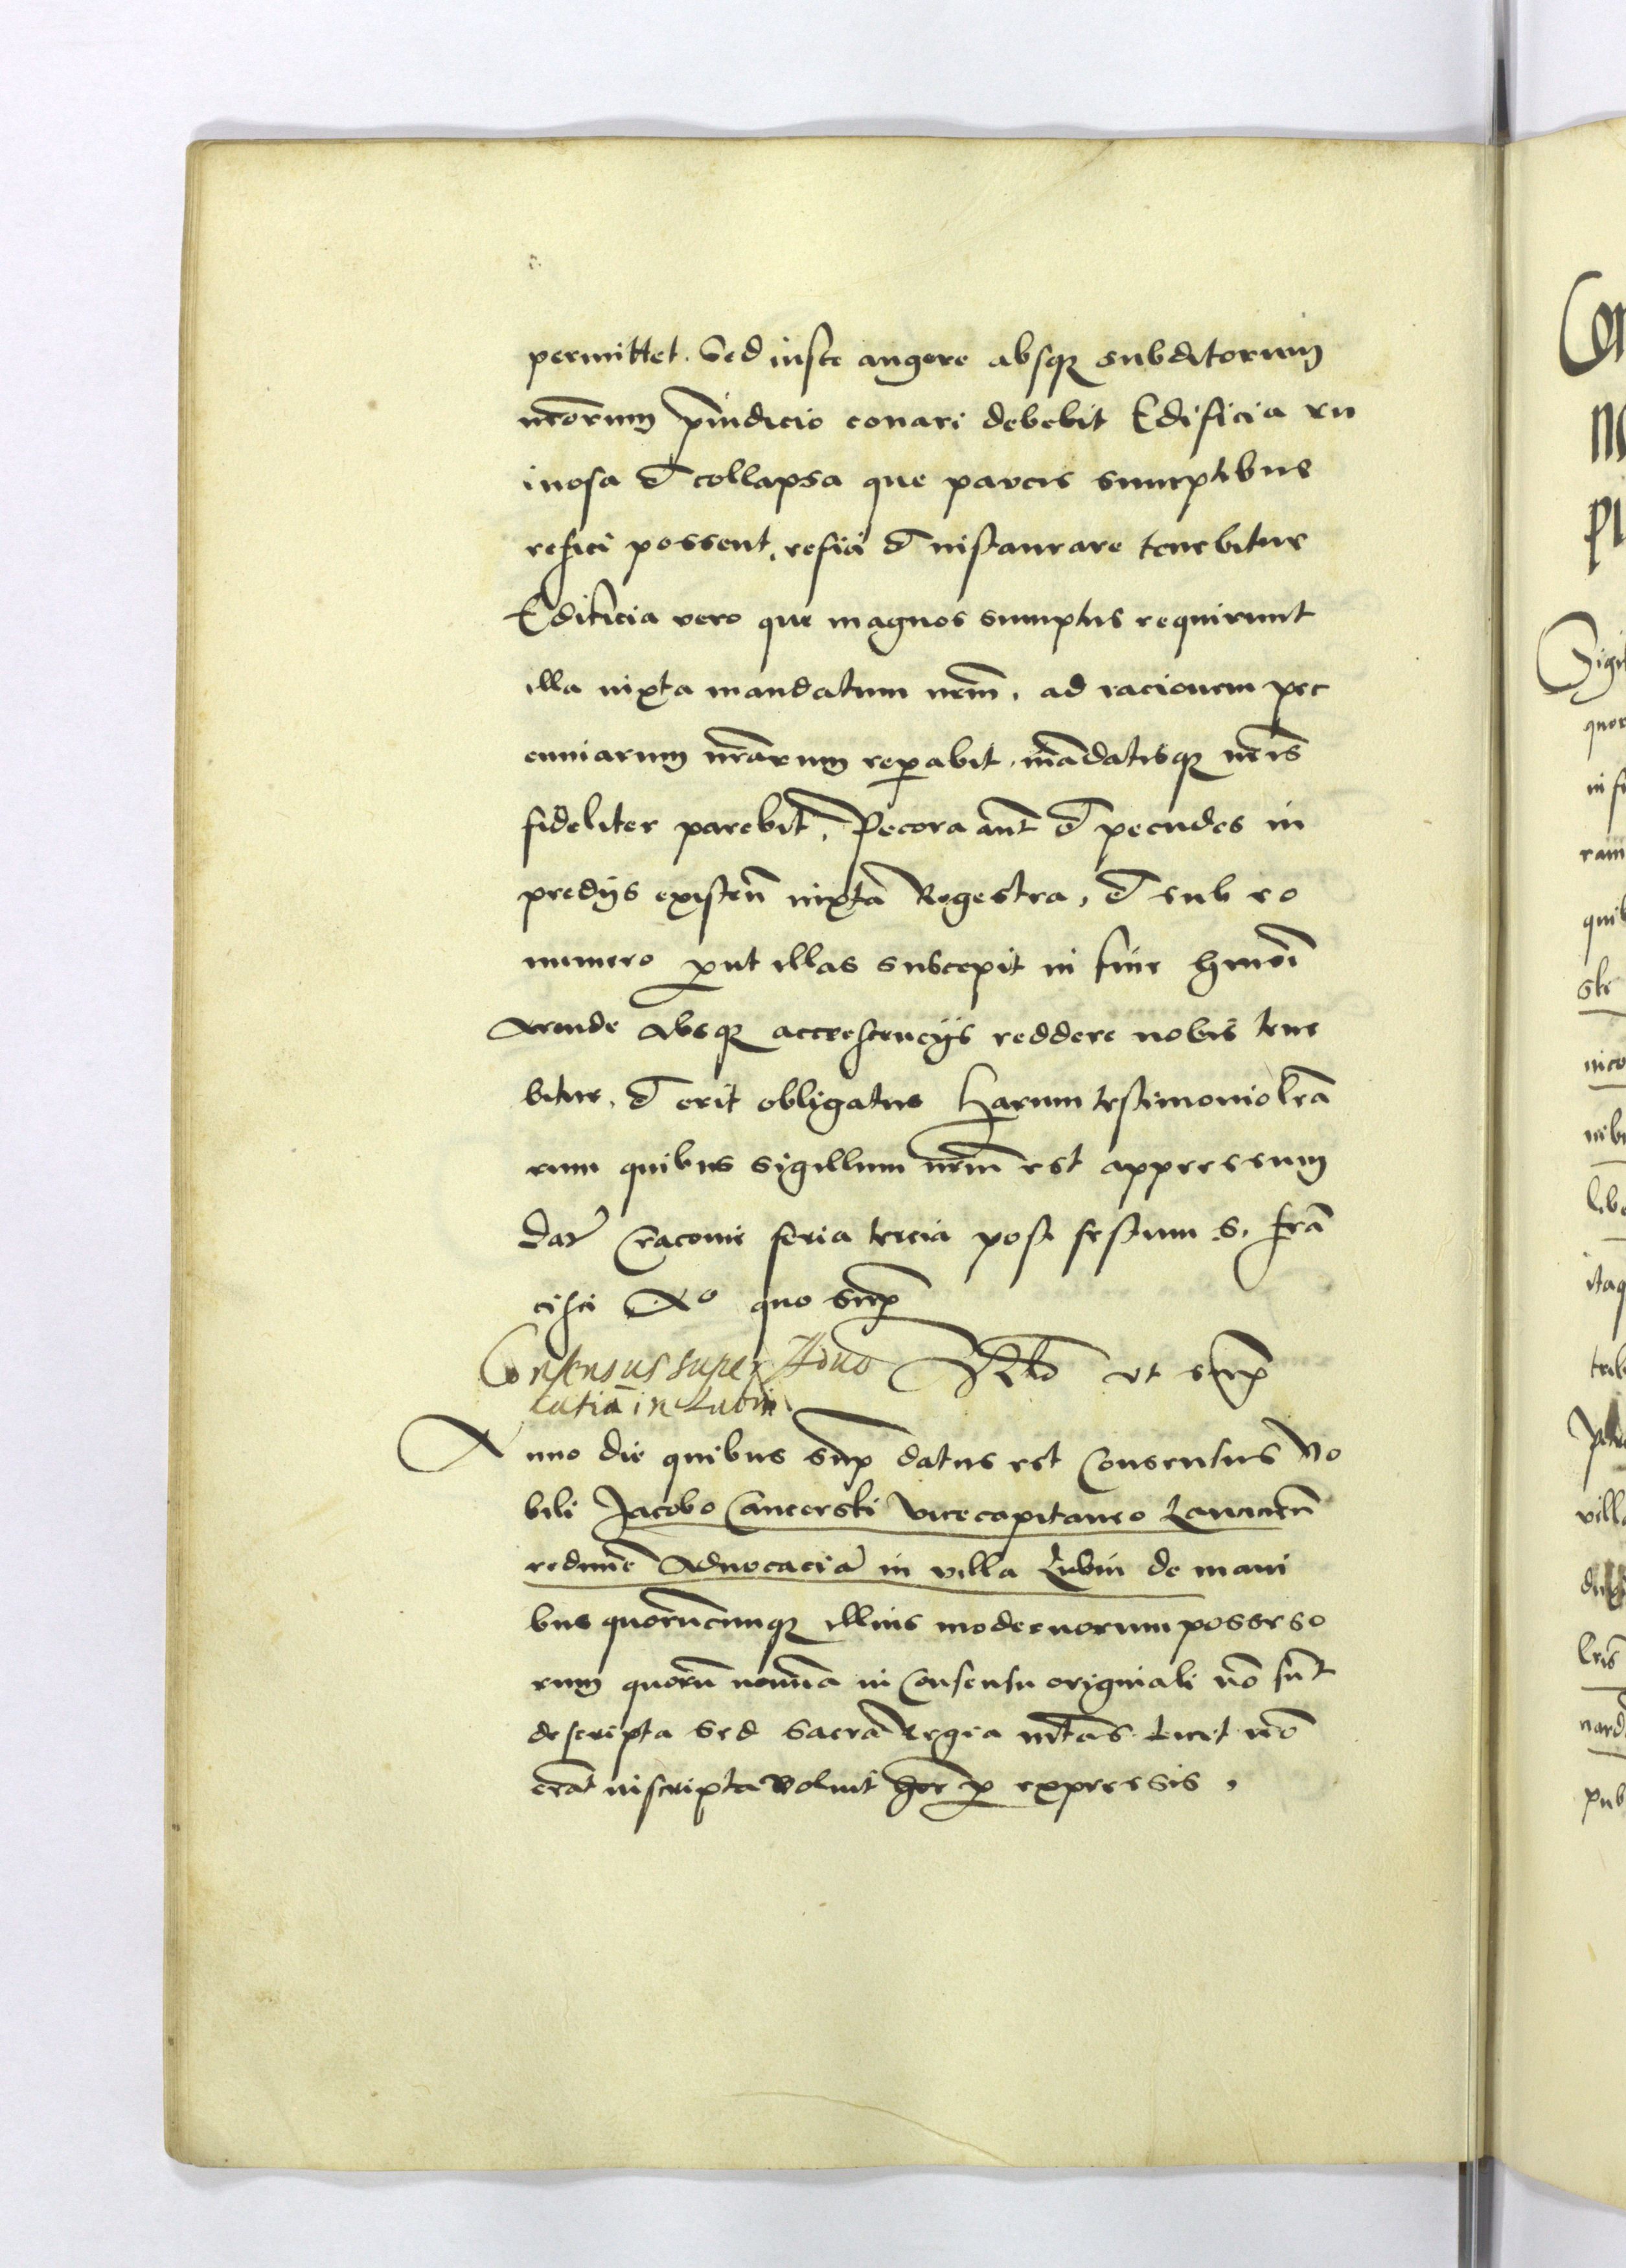 permittet. Sed iuste augere absque subditorum
nr̄orum p̄iudicio conari debebit Edificia ru
inosa et collapsa que parcis sumptibus
refici possent, refici et instaurare tenebitur
Edificia vero que magnos sumptus requirunt
illa iuxta mandatum nr̄m, ad racionem pec
cuniarum nr̄arum reparabit, mādatisque nr̄is
fideliter parebit, Pecora aūt et pecudes in
predijs existeñ iuxta Regestra, et sub eo
numero prout illas suscepit in fine hmōi
Arende absque accrescencijs reddere nobis tene
bitur, et erit obligatus Harum testimonio lrā
rum quibus sigillum nr̄m est appressum
Dat Cracovie feria tercia post festum S. Frā
cisci Ao quo sup̄
Consensus super Advo
catiā in Lubin
Rtō ut sup̄
Anno die quibus sup̄ datus est Consensus No
bili Jacobo Cancerski Vicecapitaneo Lancicieñ
redimē Advocaciā in villa Lubin de mani
bus quorūcumque illius modernorum possesso
rum quorū nomīa in Consensu originali nō sūt
descripta sed Sacra Regia mtās licet nō
erāt inscripta voluit h̄ri p̄ expressis,